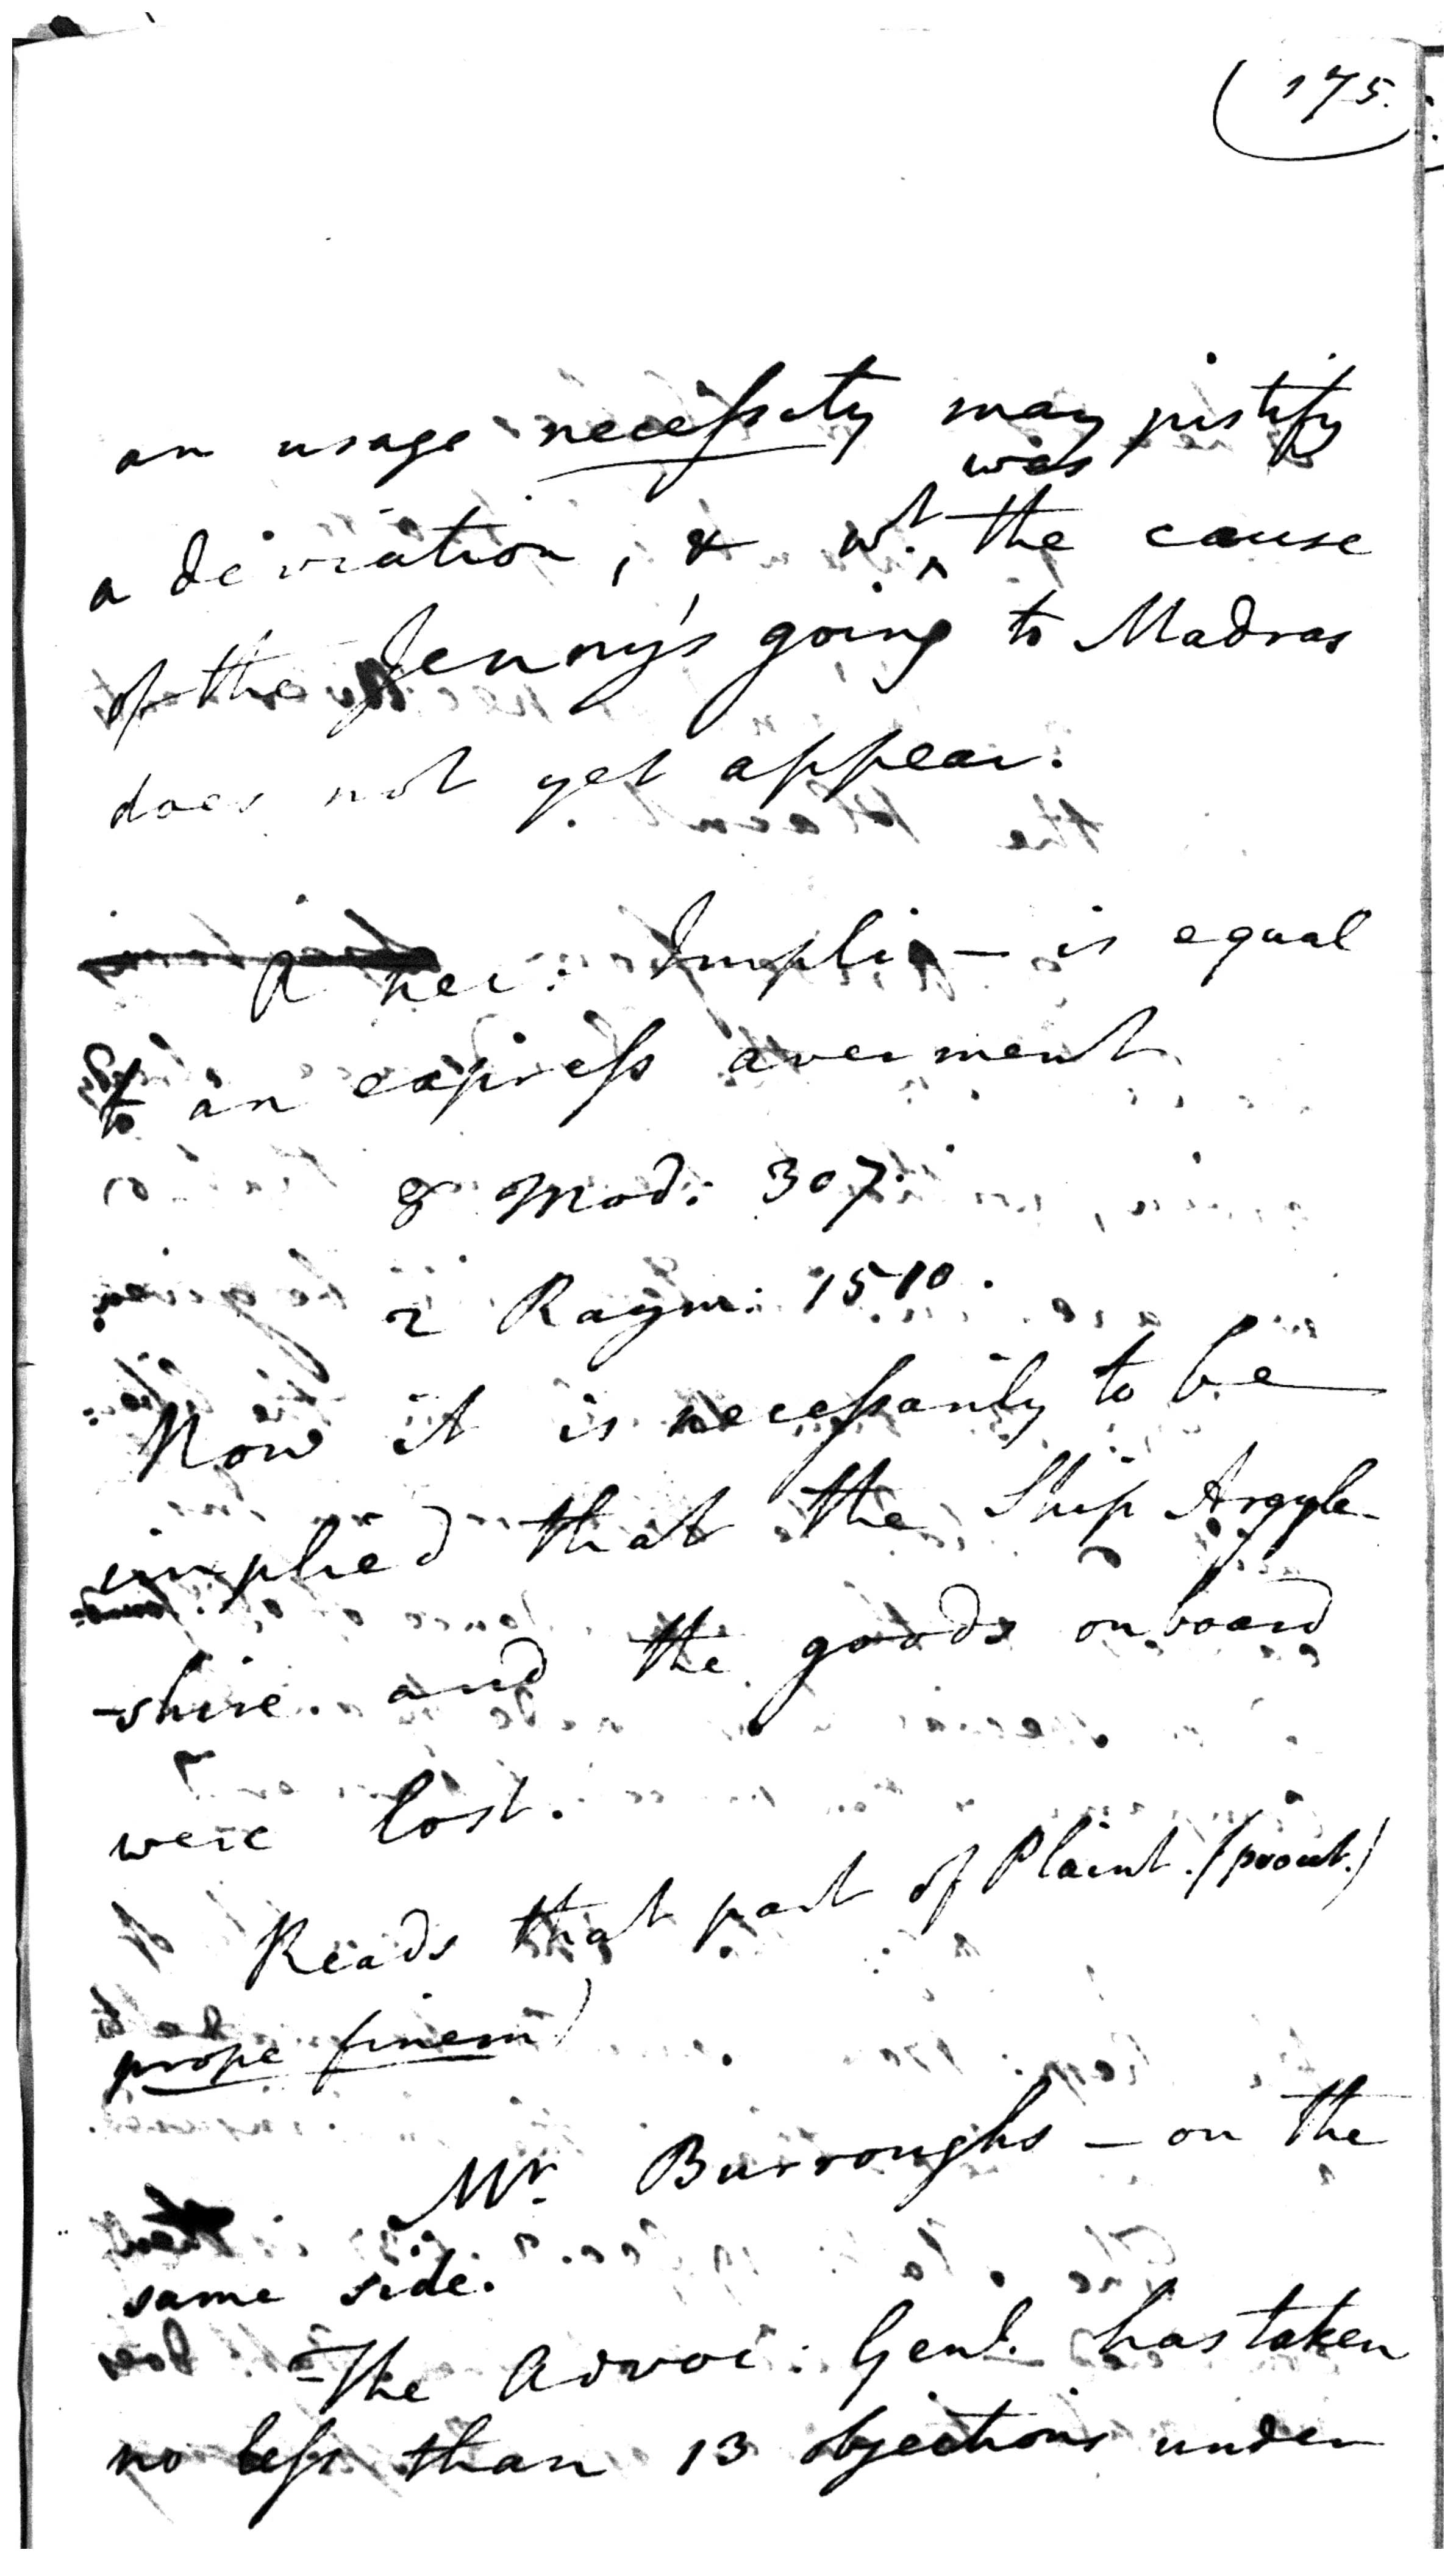 175.
an usage necessity may justify
was
a deviation, & wt. ^ the cause
of the Jenny's going to Madras
does not yet appear.
A nec: Impli — is equal
to an express averment
8 Mod: 307.
2 Raym: 1510.
Now it is necessarily to be
implied that the Ship Argyle-
-shire and the goods on board
were lost.
Reads that part of Plaint. (prout.)
prope finem)
Mr. Burroughs — on the
same side.
The Advoc: Genl. has taken
no less than 13 objections under